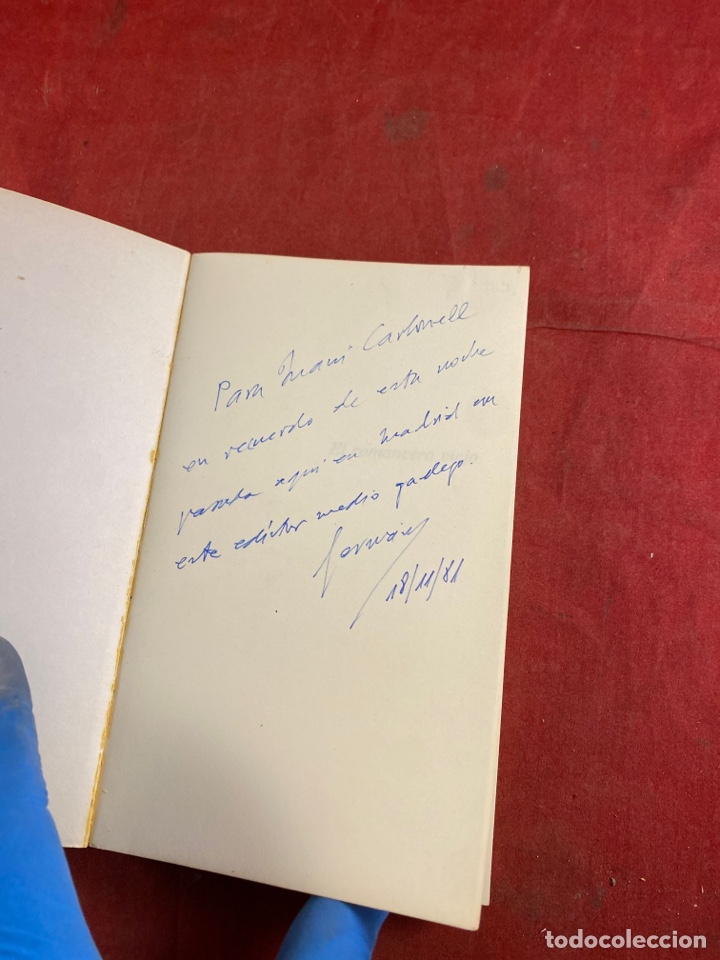 Para Juani Carbonell
en recuerdo de esta noche
pasada aquí en Madrid con
este editor medio gallego.
18/11/81
todocoleccion